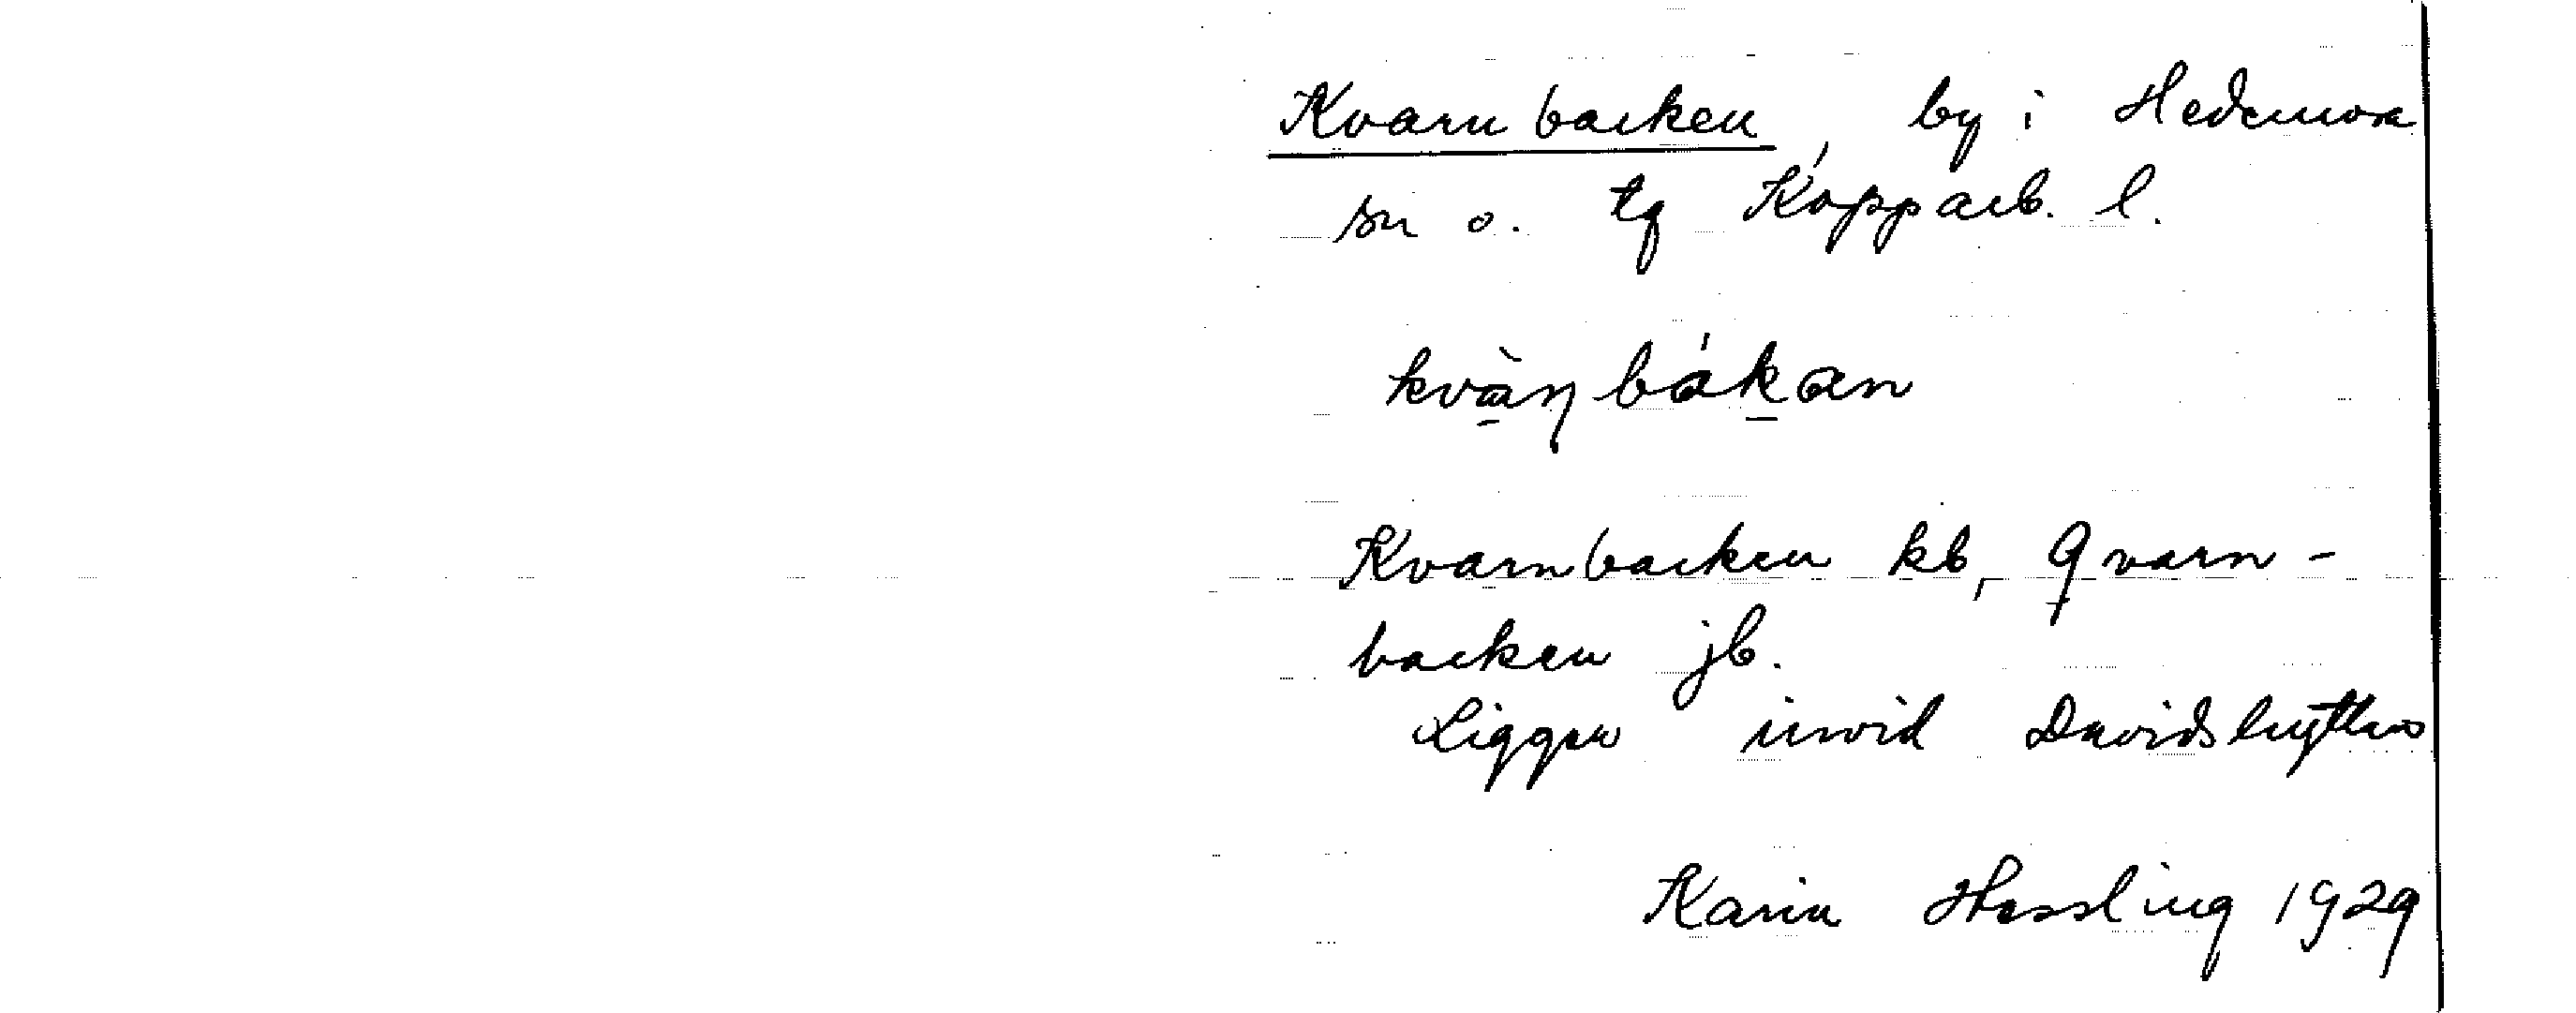 Kvarnbacken, by i Hedemora
sn o. tg Kopparb. l.
kvàṇbákan
Kvarnbacken kb, Qvarn-
backen jb.
Ligger invid Davidshyttan
Karin Hessling 1929